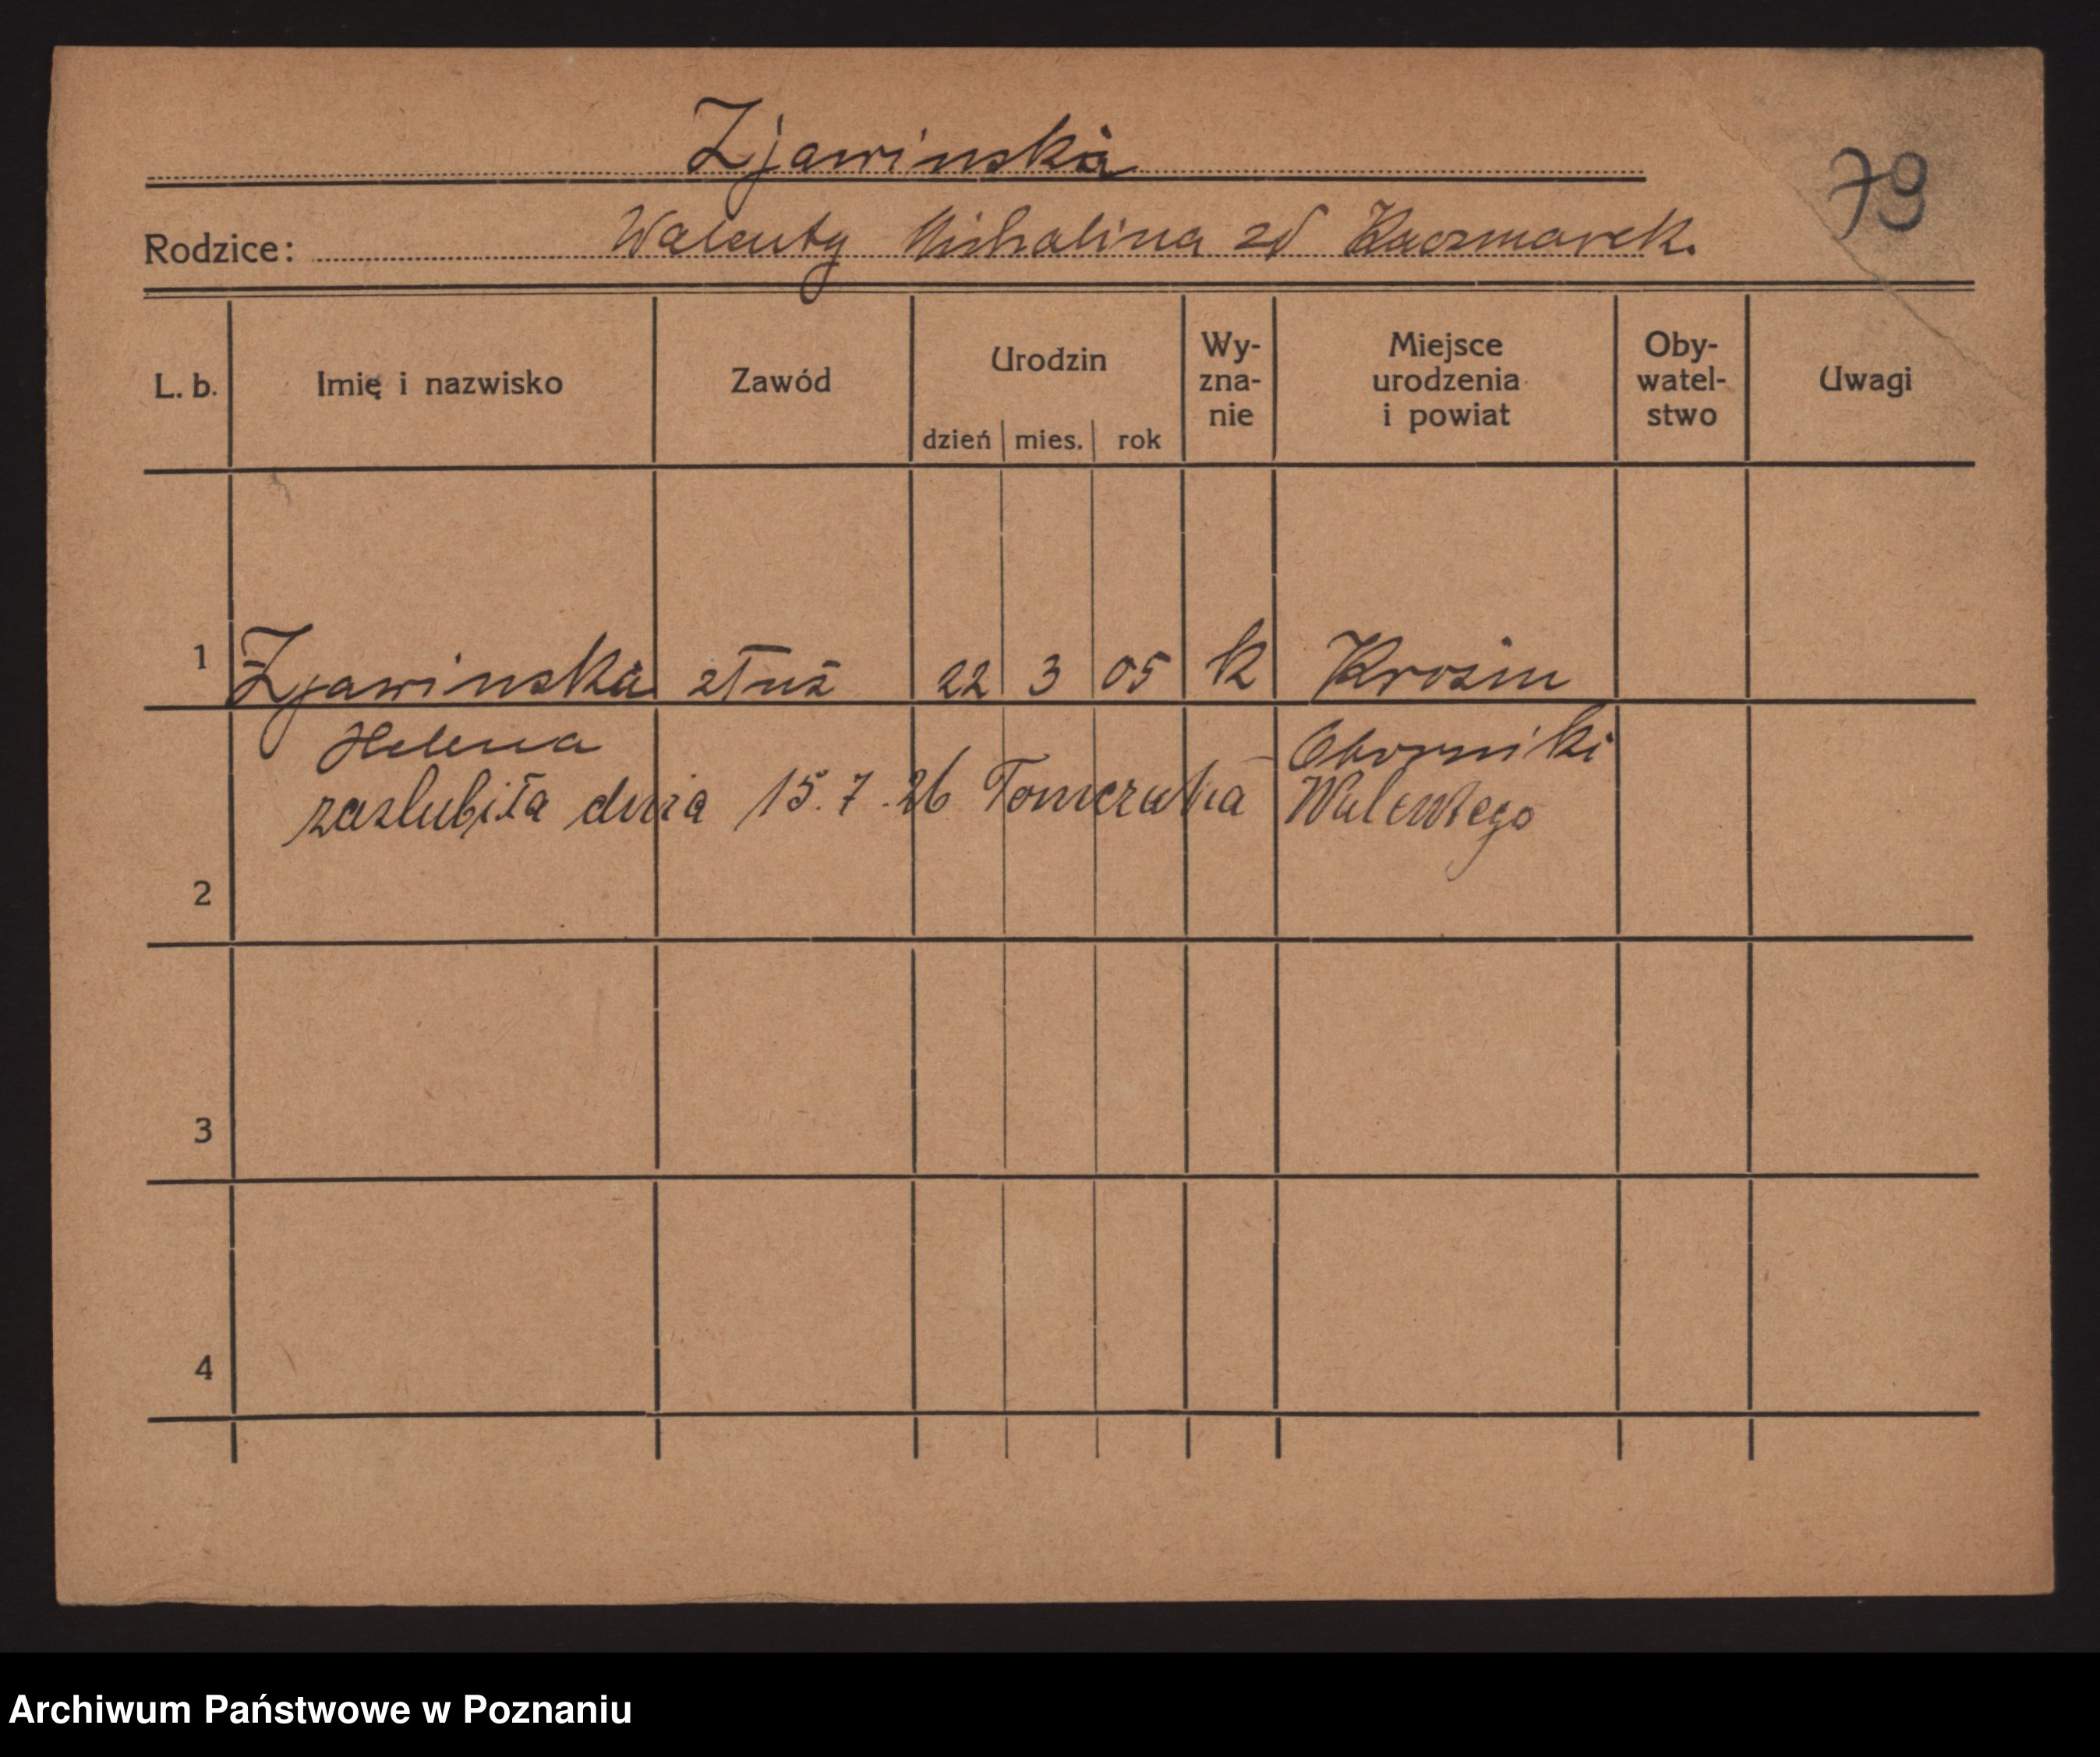 Zjawinska
79
Rodzice: Walenty Michalina zd Kaczmarek.
L. b. Imię i nazwisko Zawód Urodzin dzień mies. rok Wy-zna-nie Miejsce urodzenia i powiat Oby-watel-stwo Uwagi
1 Zjawinska 22 3 05 k
Helena Oborniki
zaslubiła dnia 15.7.26 Tomczaka Walentego
2
3
4
Archiwum Państwowe w Poznaniu